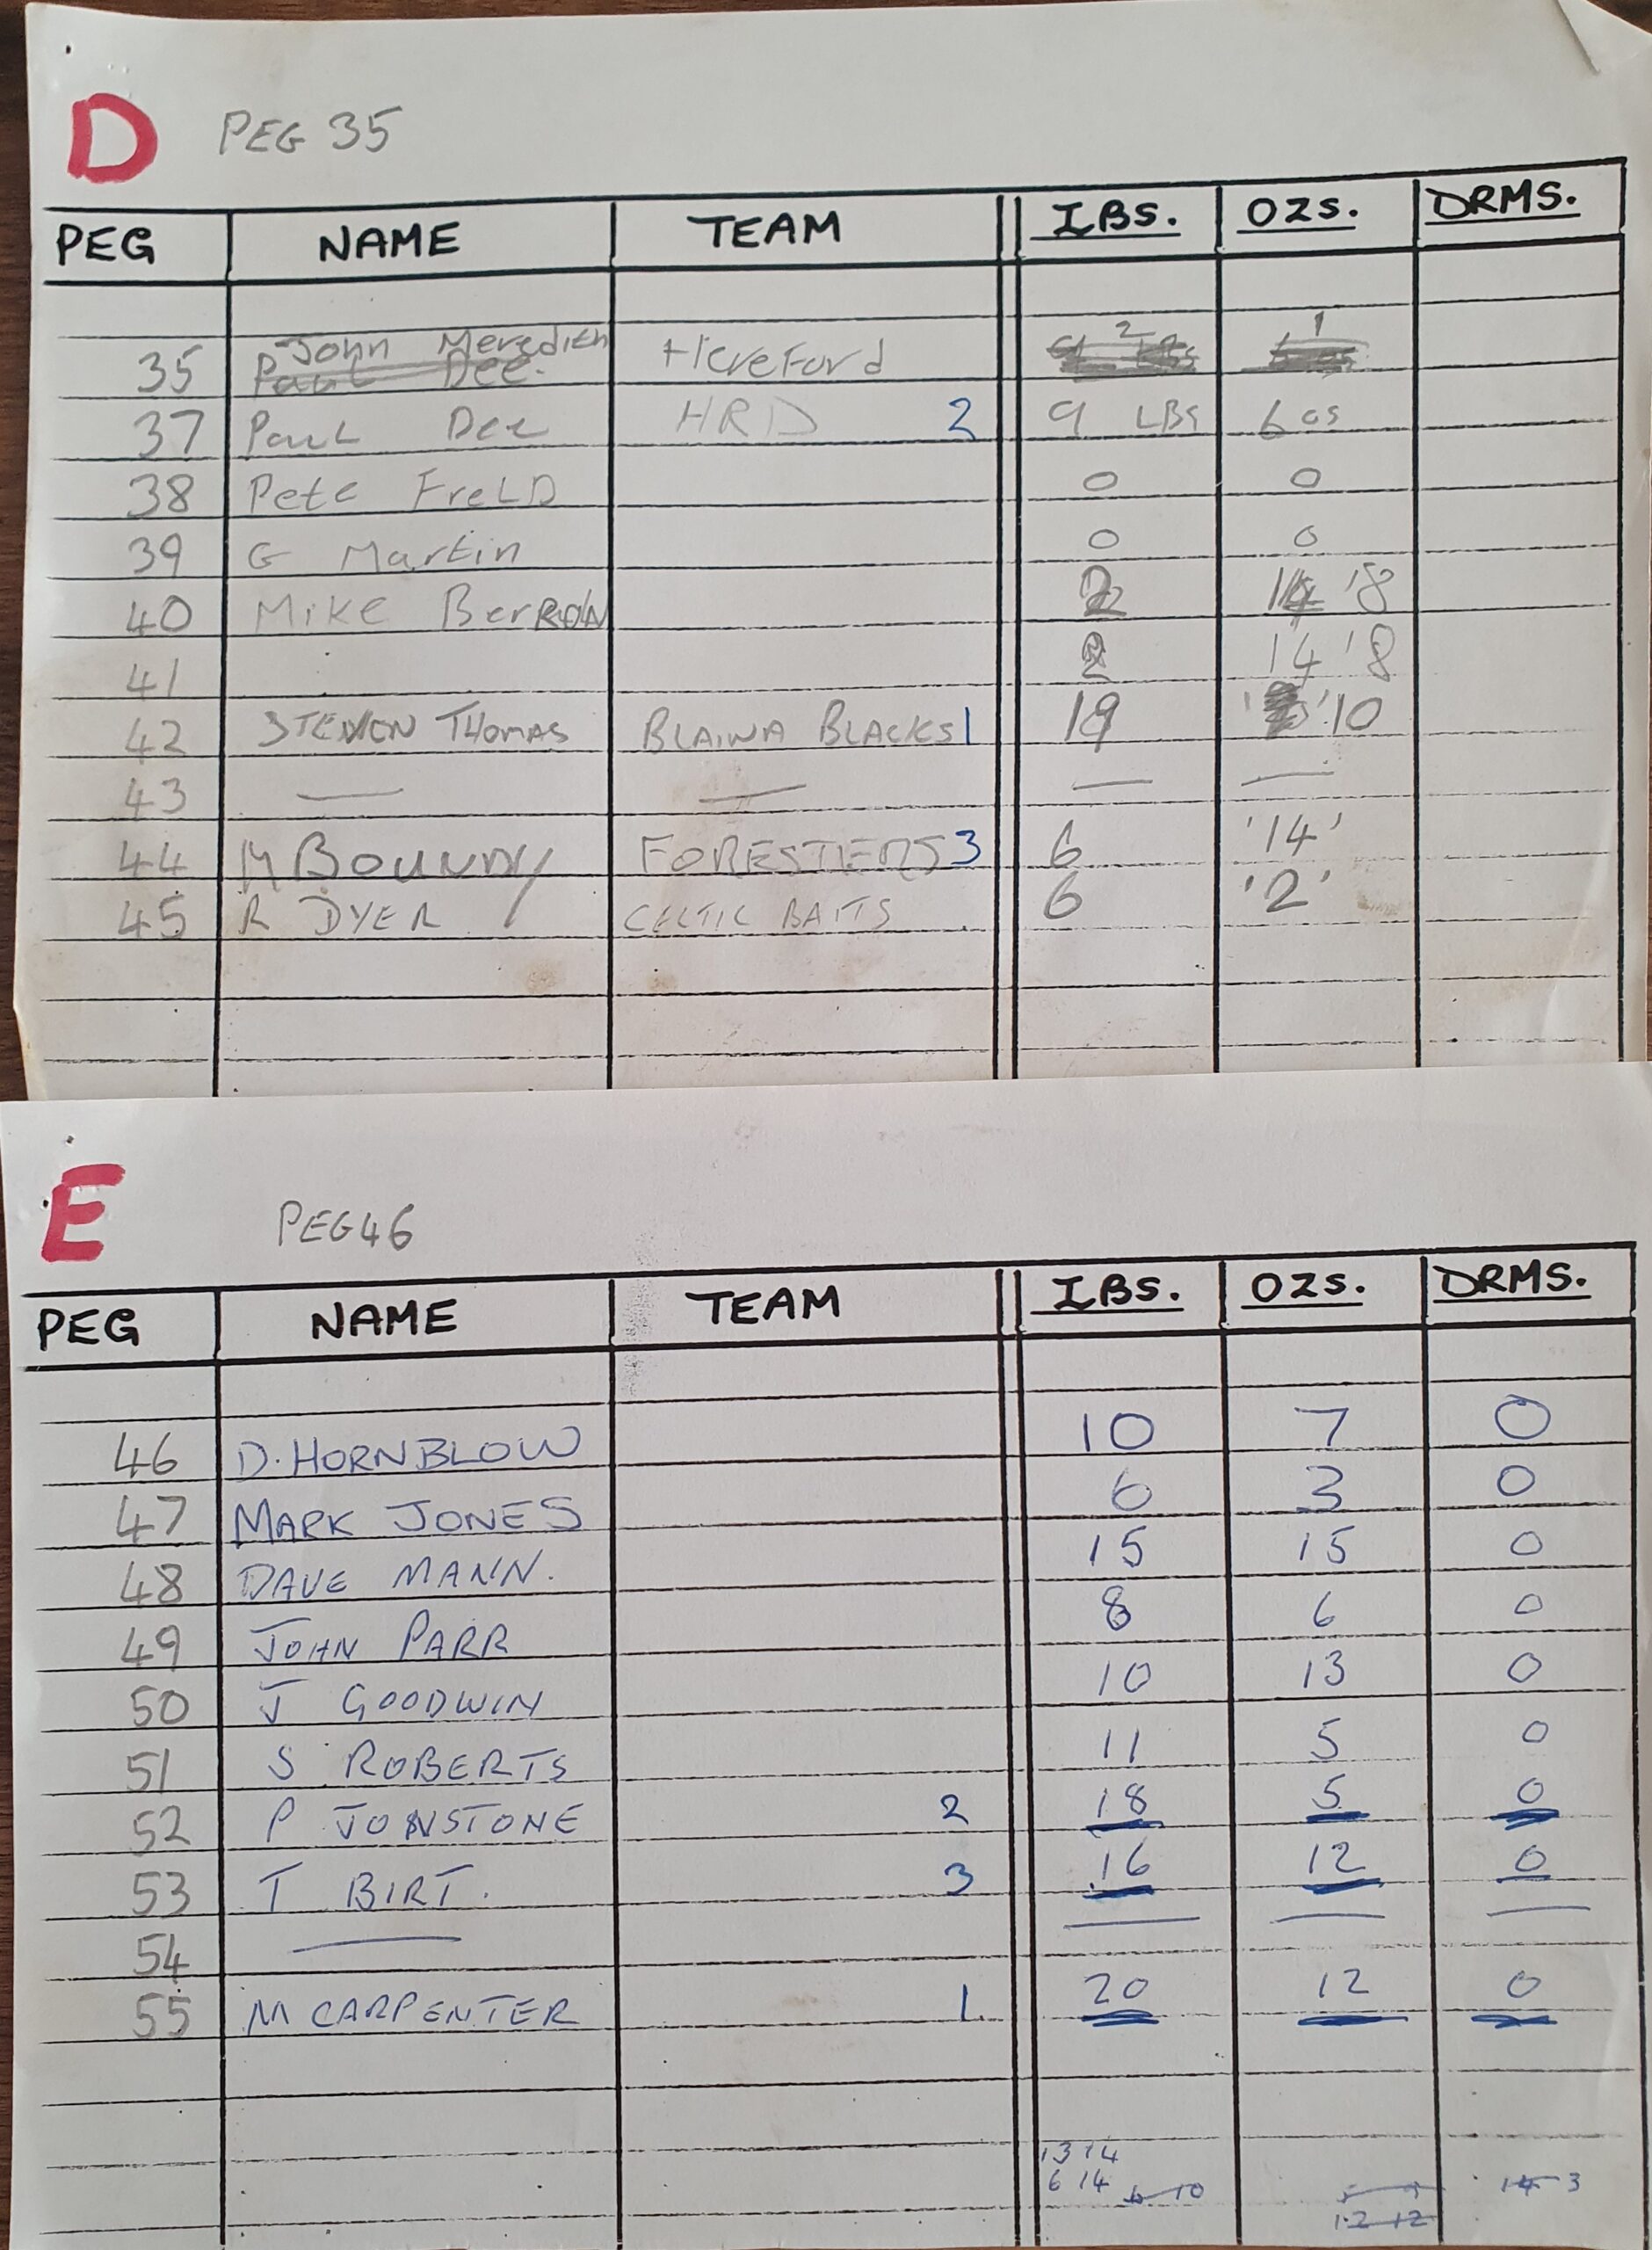 D PEG 35
PEG NAME TEAM LBS. OZS. DRMS.
35 John Meredith Hereford 2 1
Paul Dee.
37 Paul Dee HRD 2 9 LBS 6 os
38 Pete FreLD 0 0
39 G Martin 0 0
40 Mike BerRoW 2 14 '8
41 2 14 '8
42 STEVEN THOMAS BLAINA BLACKS 1 19 '10
43 — — — —
44 M BOUNDY FORESTERS 3 6 '14'
45 R DYER CELTIC BAITS 6 '2'
E PEG46
PEG NAME TEAM LBS. OZS. DRMS.
46 D. HORNBLOW 10 7 0
47 MARK JONES 6 3 0
48 DAVE MANN. 15 15 0
49 JOHN PARR 8 6 0
50 J GOODWIN 10 13 0
51 S ROBERTS 11 5 0
52 P JOHNSTONE 2 18 5 0
53 T BIRT. 3 16 12 0
54 — — — —
55 M CARPENTER 1. 20 12 0
13 14
6 14 6 10 14 3
12 12